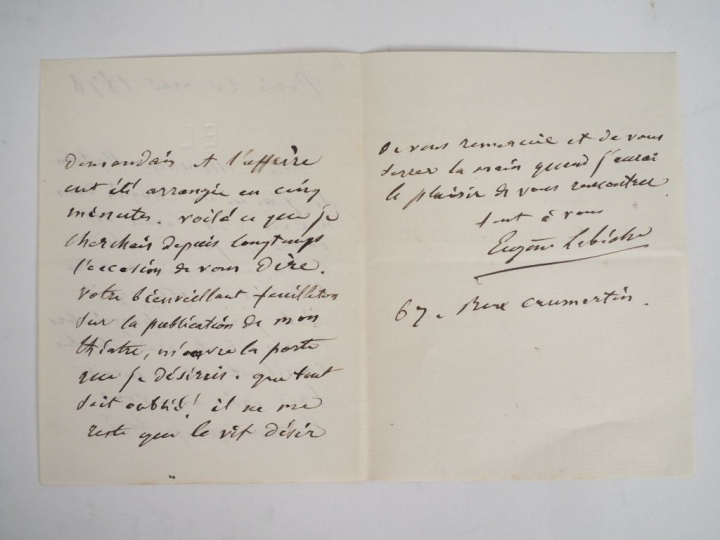 demandais et l'affaire
eut été arrangée en cinq
minutes. voilà ce que je
cherchais depuis longtemps
l'occasion de vous dire.
votre bienveillant feuilleton
sur la publication de mon
théâtre, m'ouvre la porte
que je désirais. que tout
soit oublié! il ne me
reste que le vif désir
De vous remercier et de vous
serrer la main quand j'aurai
le plaisir de vous rencontrer.
tout à vous
Eugène Labiche
67. Rue Caumartin.
Paris 20 1878